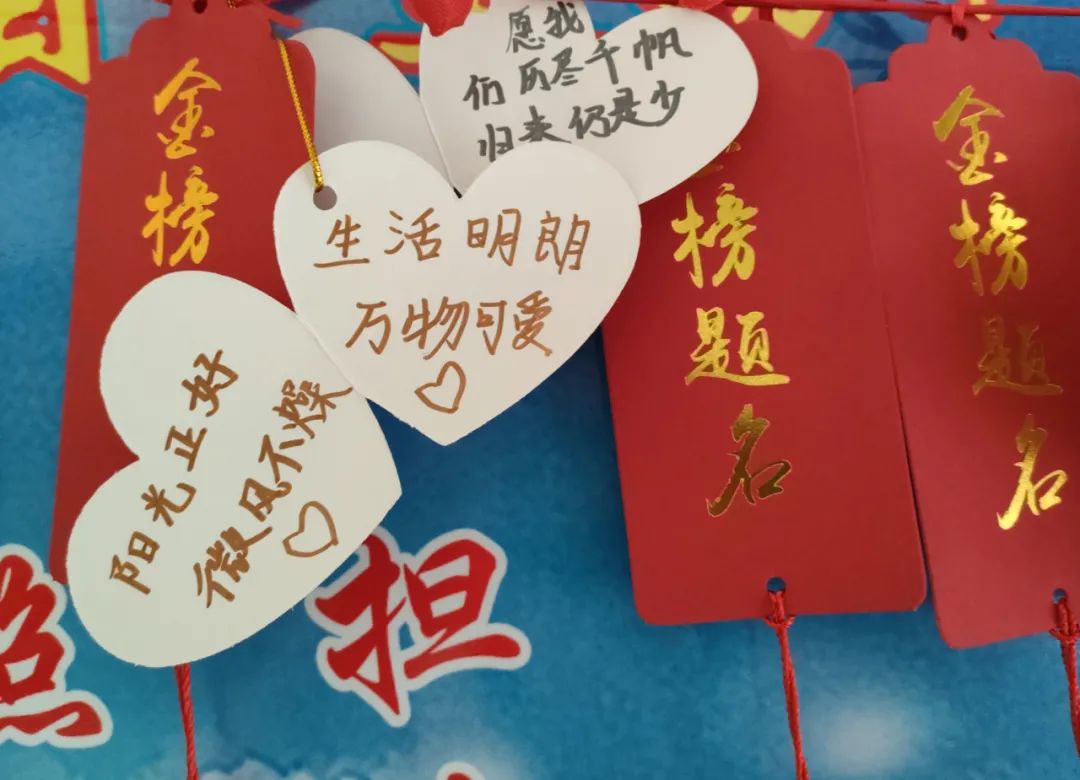 金榜
愿我
们历尽千帆
归来仍是少
生活明朗
万物可爱
阳光正好
微风不燥
榜题名
金榜题名
照
担